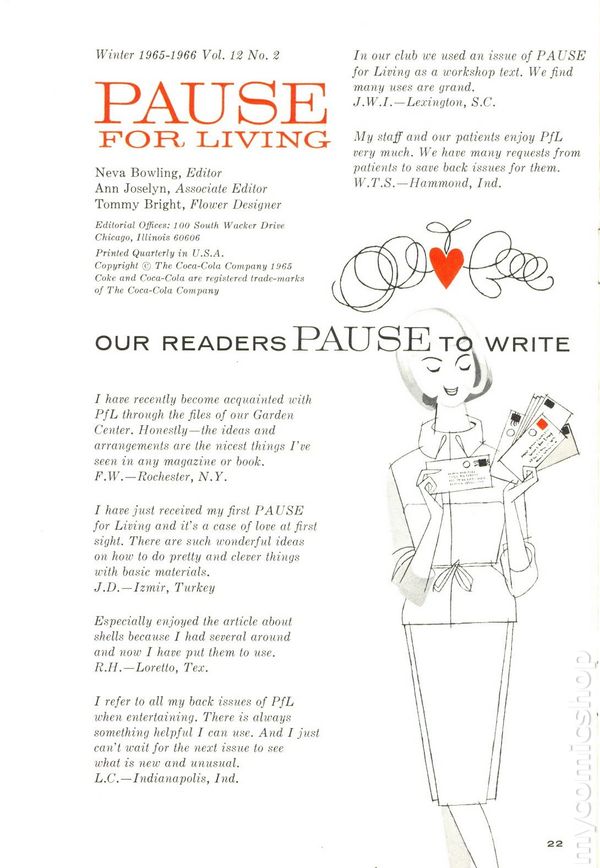 Winter 1965-1966 Vol. 12 No. 2
PAUSE
FOR LIVING
Neva Bowling, Editor
Ann Joselyn, Associate Editor
Tommy Bright, Flower Designer
Editorial Offices: 100 South Wacker Drive
Chicago, Illinois 60606
Printed Quarterly in U.S.A.
Copyright © The Coca-Cola Company 1965
Coke and Coca-Cola are registered trade-marks
of The Coca-Cola Company
In our club we used an issue of PAUSE
for Living as a workshop text. We find
many uses are grand.
J.W.I.—Lexington, S.C.
My staff and our patients enjoy PfL
very much. We have many requests from
patients to save back issues for them.
W.T.S.—Hammond, Ind.
OUR READERS PAUSE TO WRITE
I have recently become acquainted with
PfL through the files of our Garden
Center. Honestly—the ideas and
arrangements are the nicest things I've
seen in any magazine or book.
F.W.—Rochester, N.Y.
I have just received my first PAUSE
for Living and it's a case of love at first
sight. There are such wonderful ideas
on how to do pretty and clever things
with basic materials.
J.D.—Izmir, Turkey
Especially enjoyed the article about
shells because I had several around
and now I have put them to use.
R.H.—Loretto, Tex.
I refer to all my back issues of PfL
when entertaining. There is always
something helpful I can use. And I just
can't wait for the next issue to see
what is new and unusual.
L.C.—Indianapolis, Ind.
22
mycomicshop